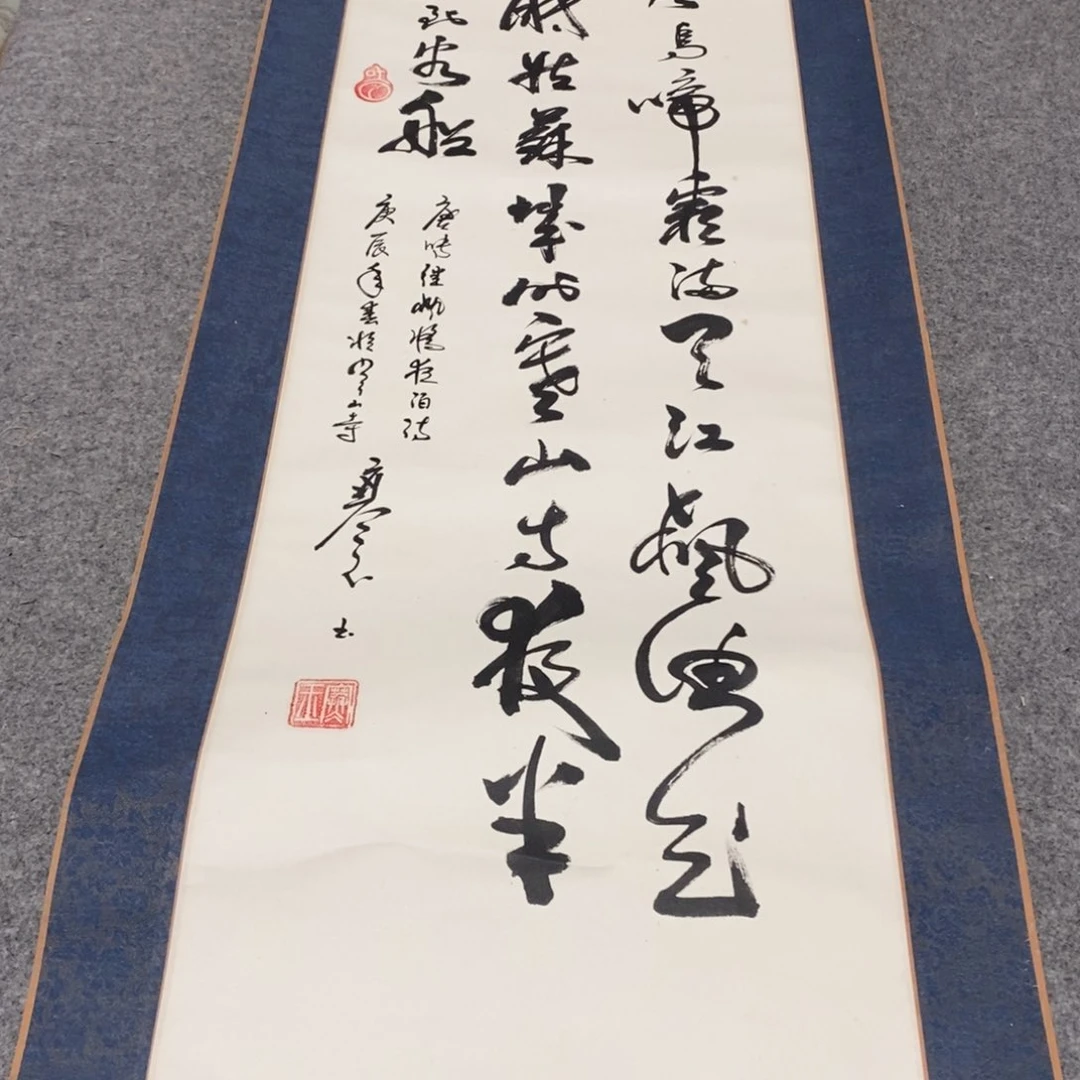 烏啼霜滿天江楓漁火
眠姑蘇城外寒山寺夜半
到客船
唐張繼楓橋夜泊詩
庚辰年春於寒山寺
书